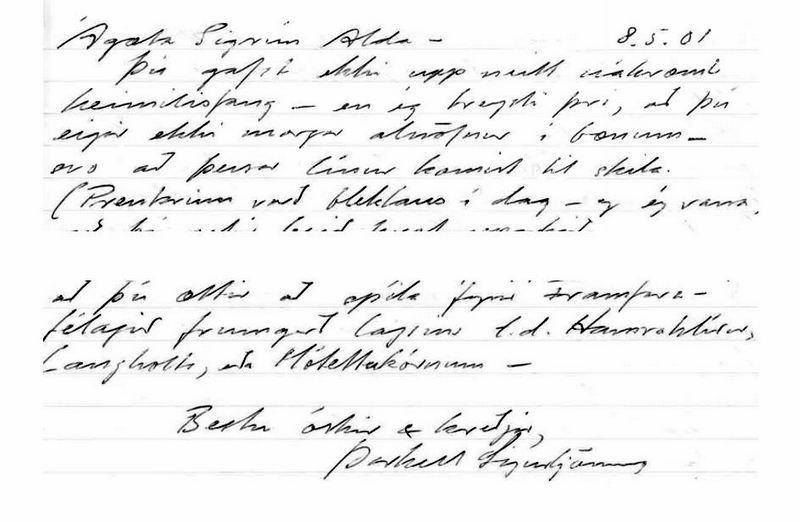 Ágæta Sigrún Alda – 8.5.01
Þú gafst ekki upp neitt nákvæmt
heimilisfang – en ég treysti því, að þú
eigir ekki margar alnöfnur í bænum –
svo að þessar línur komist til skila.
(Prentarinn varð bleklaus í dag – og ég vona,
að þú ættir að spila fyrir Framfara-
félagið frumgerð lagsins t.d. Hamrahlíðar,
Langholts, eða Mótettukórnum –
Bestu óskir & kveðjur,
Þorkell Sigurbjörnsson